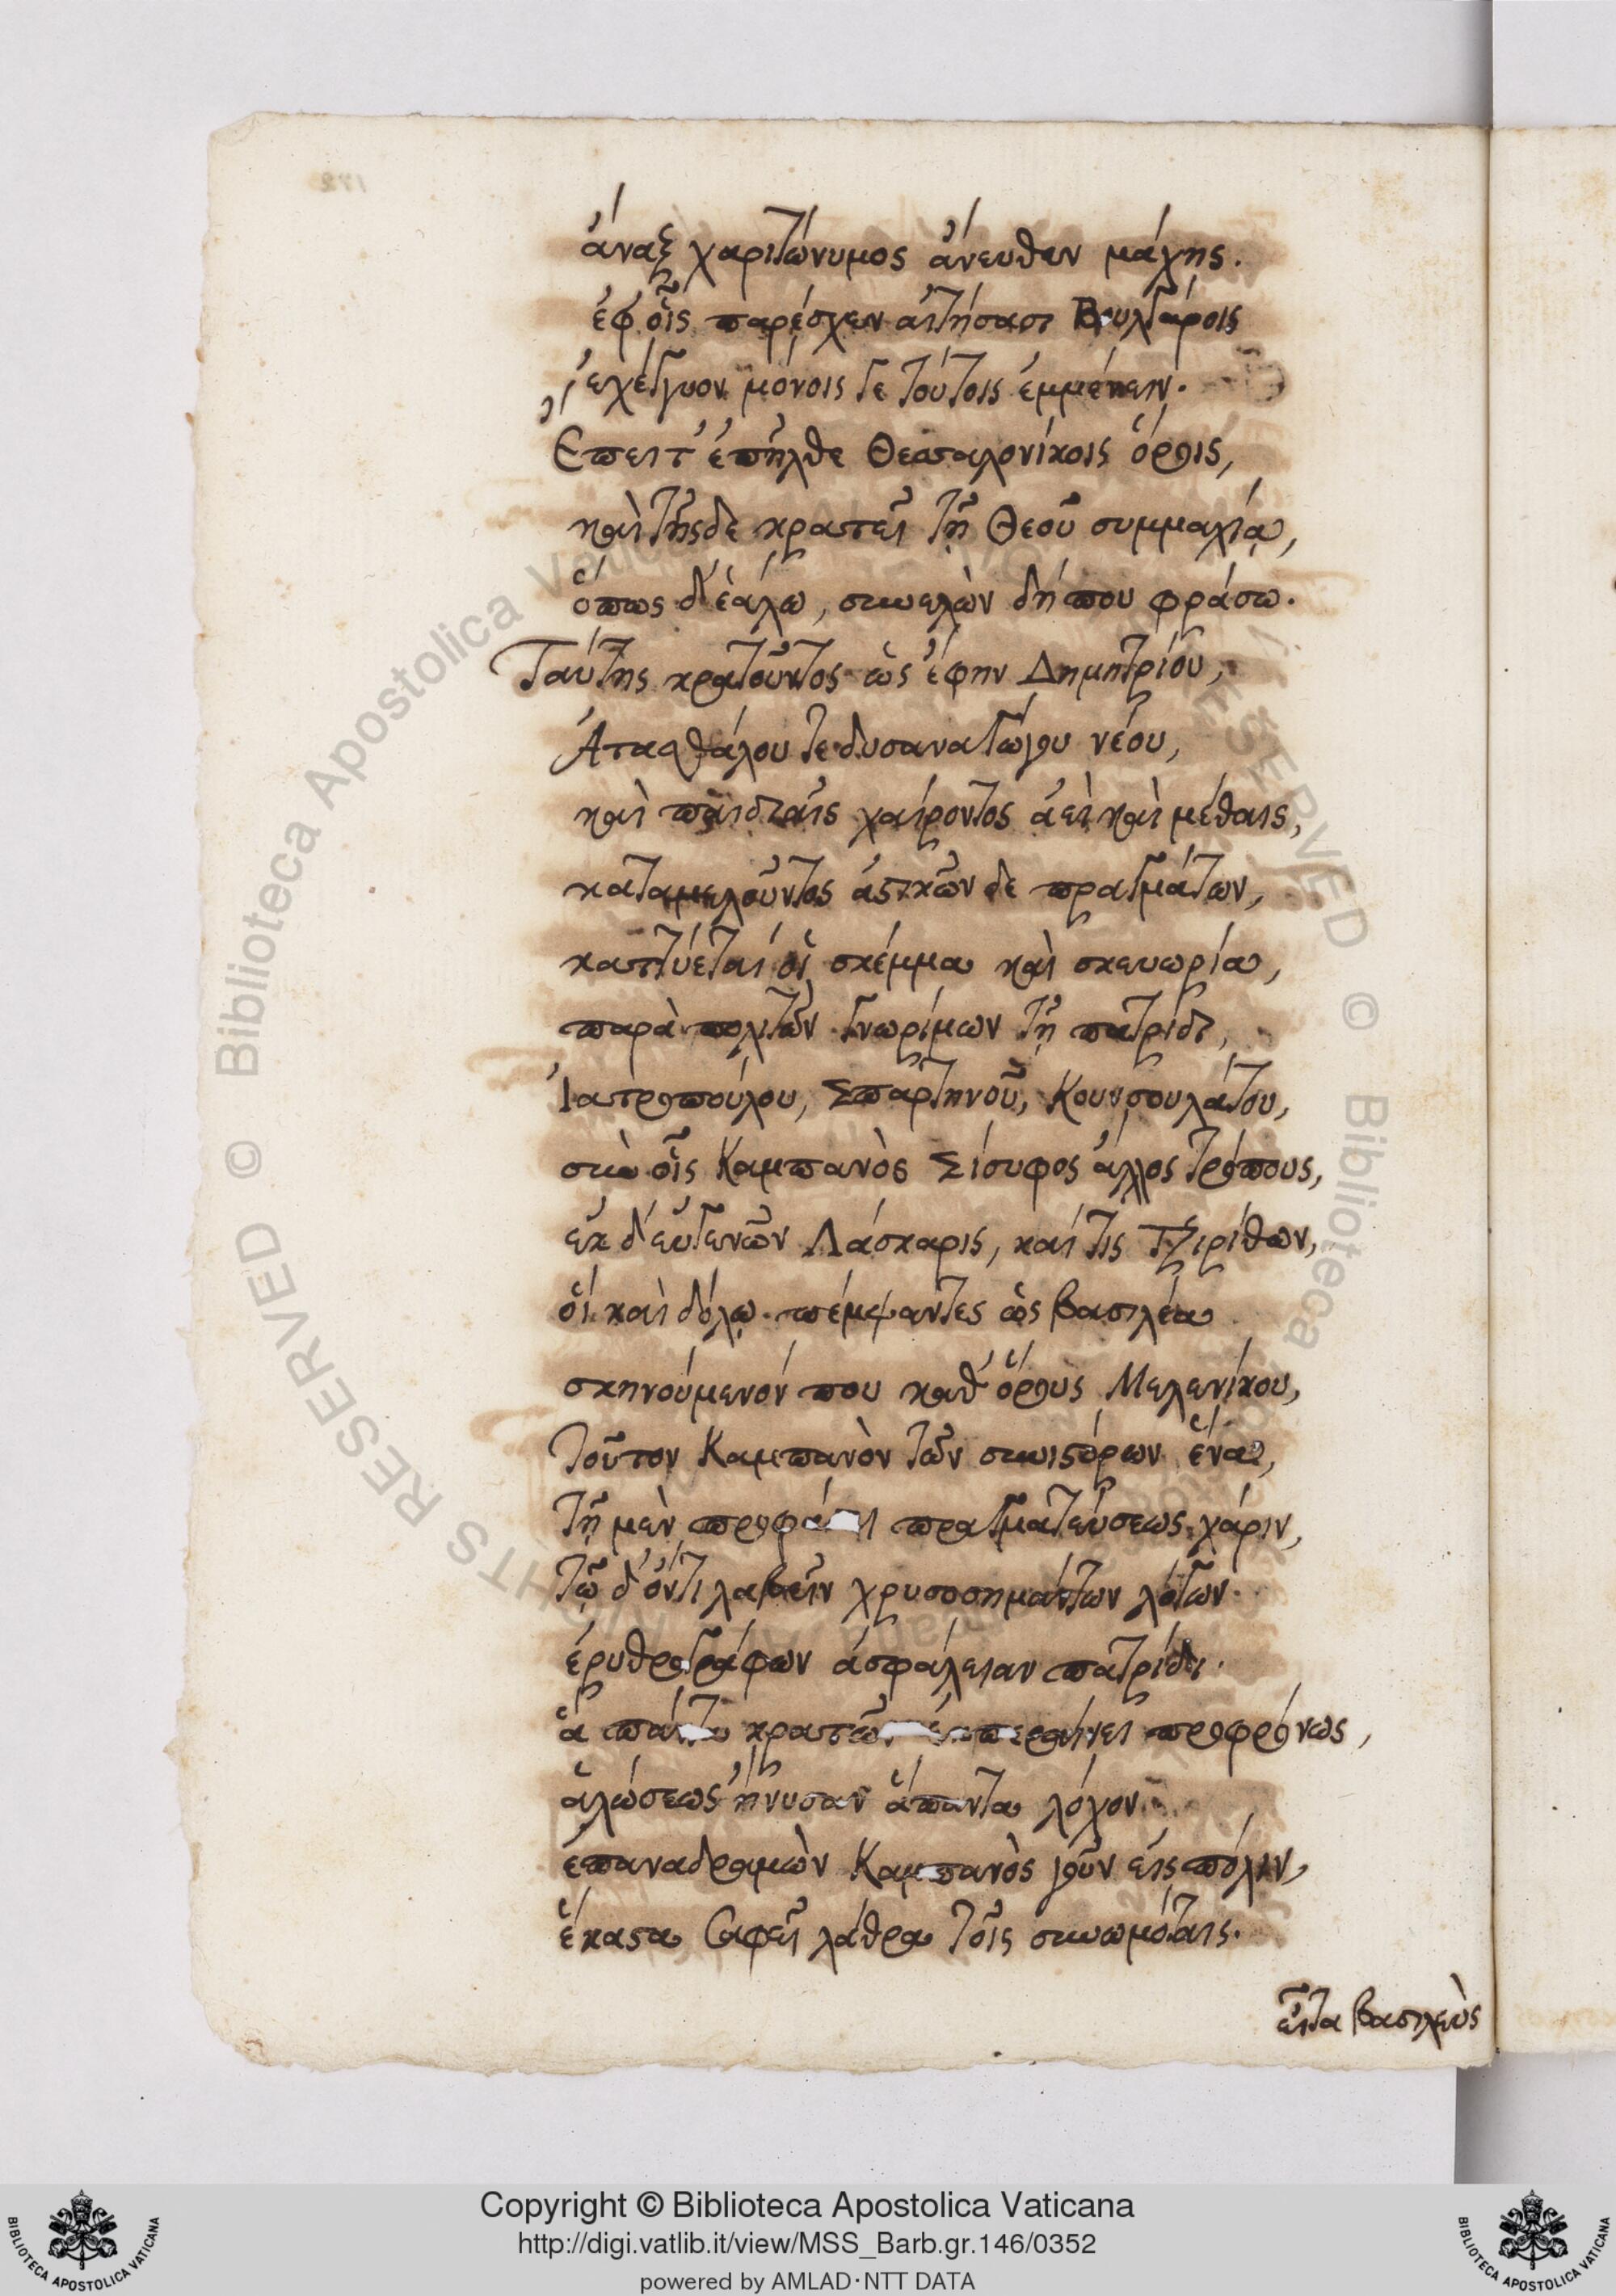 ἄναξ χαριτώνυμος ἄνευθεν μάχης.
ἐφ' οἷς παρέσχεν αἰτήσασι Βουλγάροις
ἐχέγγυον μόνοις γε τούτοις ἐμμένειν.
Ἔπειτ' ἐπῆλθε Θεσσαλονίκοις ὅροις,
καὶ τῆςδε κρατεῖ τῇ Θεοῦ συμμαχίᾳ,
ὅπως δ' ἑάλω, συνελὼν δή που φράσω.
Ταύτης κρατοῦντος ὡς ἔφην Δημητρίου,
Ἀτασθάλου τε δυσαναγώγου νέου,
καὶ παιδιαῖς χαίροντος ἀεὶ καὶ μέθαις,
καταμελοῦντος ἀστικῶν δε πραγμάτων,
καττύεταί οἱ σκέμμα καὶ σκευωρία,
παρὰ πολιτῶν γνωρίμων τῇ πατρίδι,
Ἰατροπούλου, Σπαρτηνοῦ, Κουτζουλάτου,
σὺν οἷς Καμπανὸς Σίσυφος ἄλλος τρόπους,
ἐκ δ' εὐγενῶν Λάσκαρις, καί τις Τζιρίθων,
οἳ καὶ δόλῳ πέμψαντες ὡς βασιλέα
σκηνούμενόν που καθ' ὅρους Μελενίκου,
τοῦτον Καμπανὸν τῶν συνιστόρων ἕνα,
τῇ μὲν προφάσει πραγματεύσεως χάριν,
τῷ δ' ὄντι λαβεῖν χρυσοσημάντων λόγων
ἐρυθρογράφων ἀσφάλειαν πατρίδι.
ἃ πάντα κρατῶν περαίνει προφρόνως,
ἁλώσεως ἤνυσαν ἅπαντα λόχον
ἐπαναδραμὼν Καμπανὸς γοῦν εἰς πόλιν,
ἕκαστα σαφεῖ λάθρα τοῖς συνωμόταις.
εἶτα βασιλεὺς
Copyright © Biblioteca Apostolica Vaticana
http://digi.vatlib.it/view/MSS_Barb.gr.146/0352
powered by AMLAD·NTT DATA